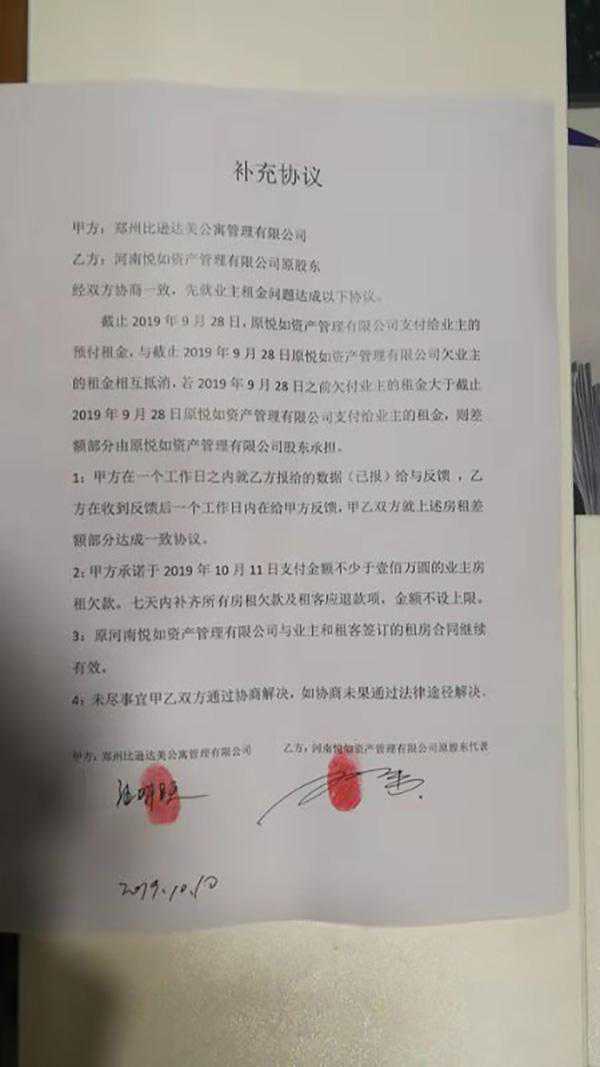 补充协议
甲方：郑州比逊达美公寓管理有限公司
乙方：河南悦如资产管理有限公司原股东
经双方协商一致，先就业主租金问题达成以下协议。
截止 2019 年 9 月 28 日，原悦如资产管理有限公司支付给业主的
预付租金，与截止 2019 年 9 月 28 日原悦如资产管理有限公司欠业主
的租金相互抵消，若 2019 年 9 月 28 日之前欠付业主的租金大于截止
2019 年 9 月 28 日原悦如资产管理有限公司支付给业主的租金，则差
额部分由原悦如资产管理有限公司股东承担。
1：甲方在一个工作日之内就乙方报给的数据（已报）给与反馈 ，乙
方在收到反馈后一个工作日内在给甲方反馈，甲乙双方就上述房租差
额部分达成一致协议。
2：甲方承诺于 2019 年 10 月 11 日支付金额不少于壹佰万圆的业主房
租欠款。七天内补齐所有房租欠款及租客应退款项，金额不设上限。
3：原河南悦如资产管理有限公司与业主和租客签订的租房合同继续
有效。
4：未尽事宜甲乙双方通过协商解决，如协商未果通过法律途径解决。
甲方：郑州比逊达美公寓管理有限公司 乙方：河南悦如资产管理有限公司原股东代表
2019.10.10